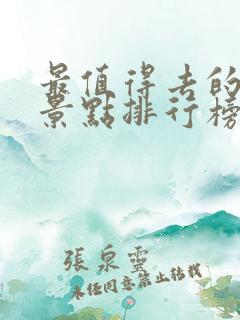 最值得去的
景點排行榜
張泉靈
未經同意禁止轉載